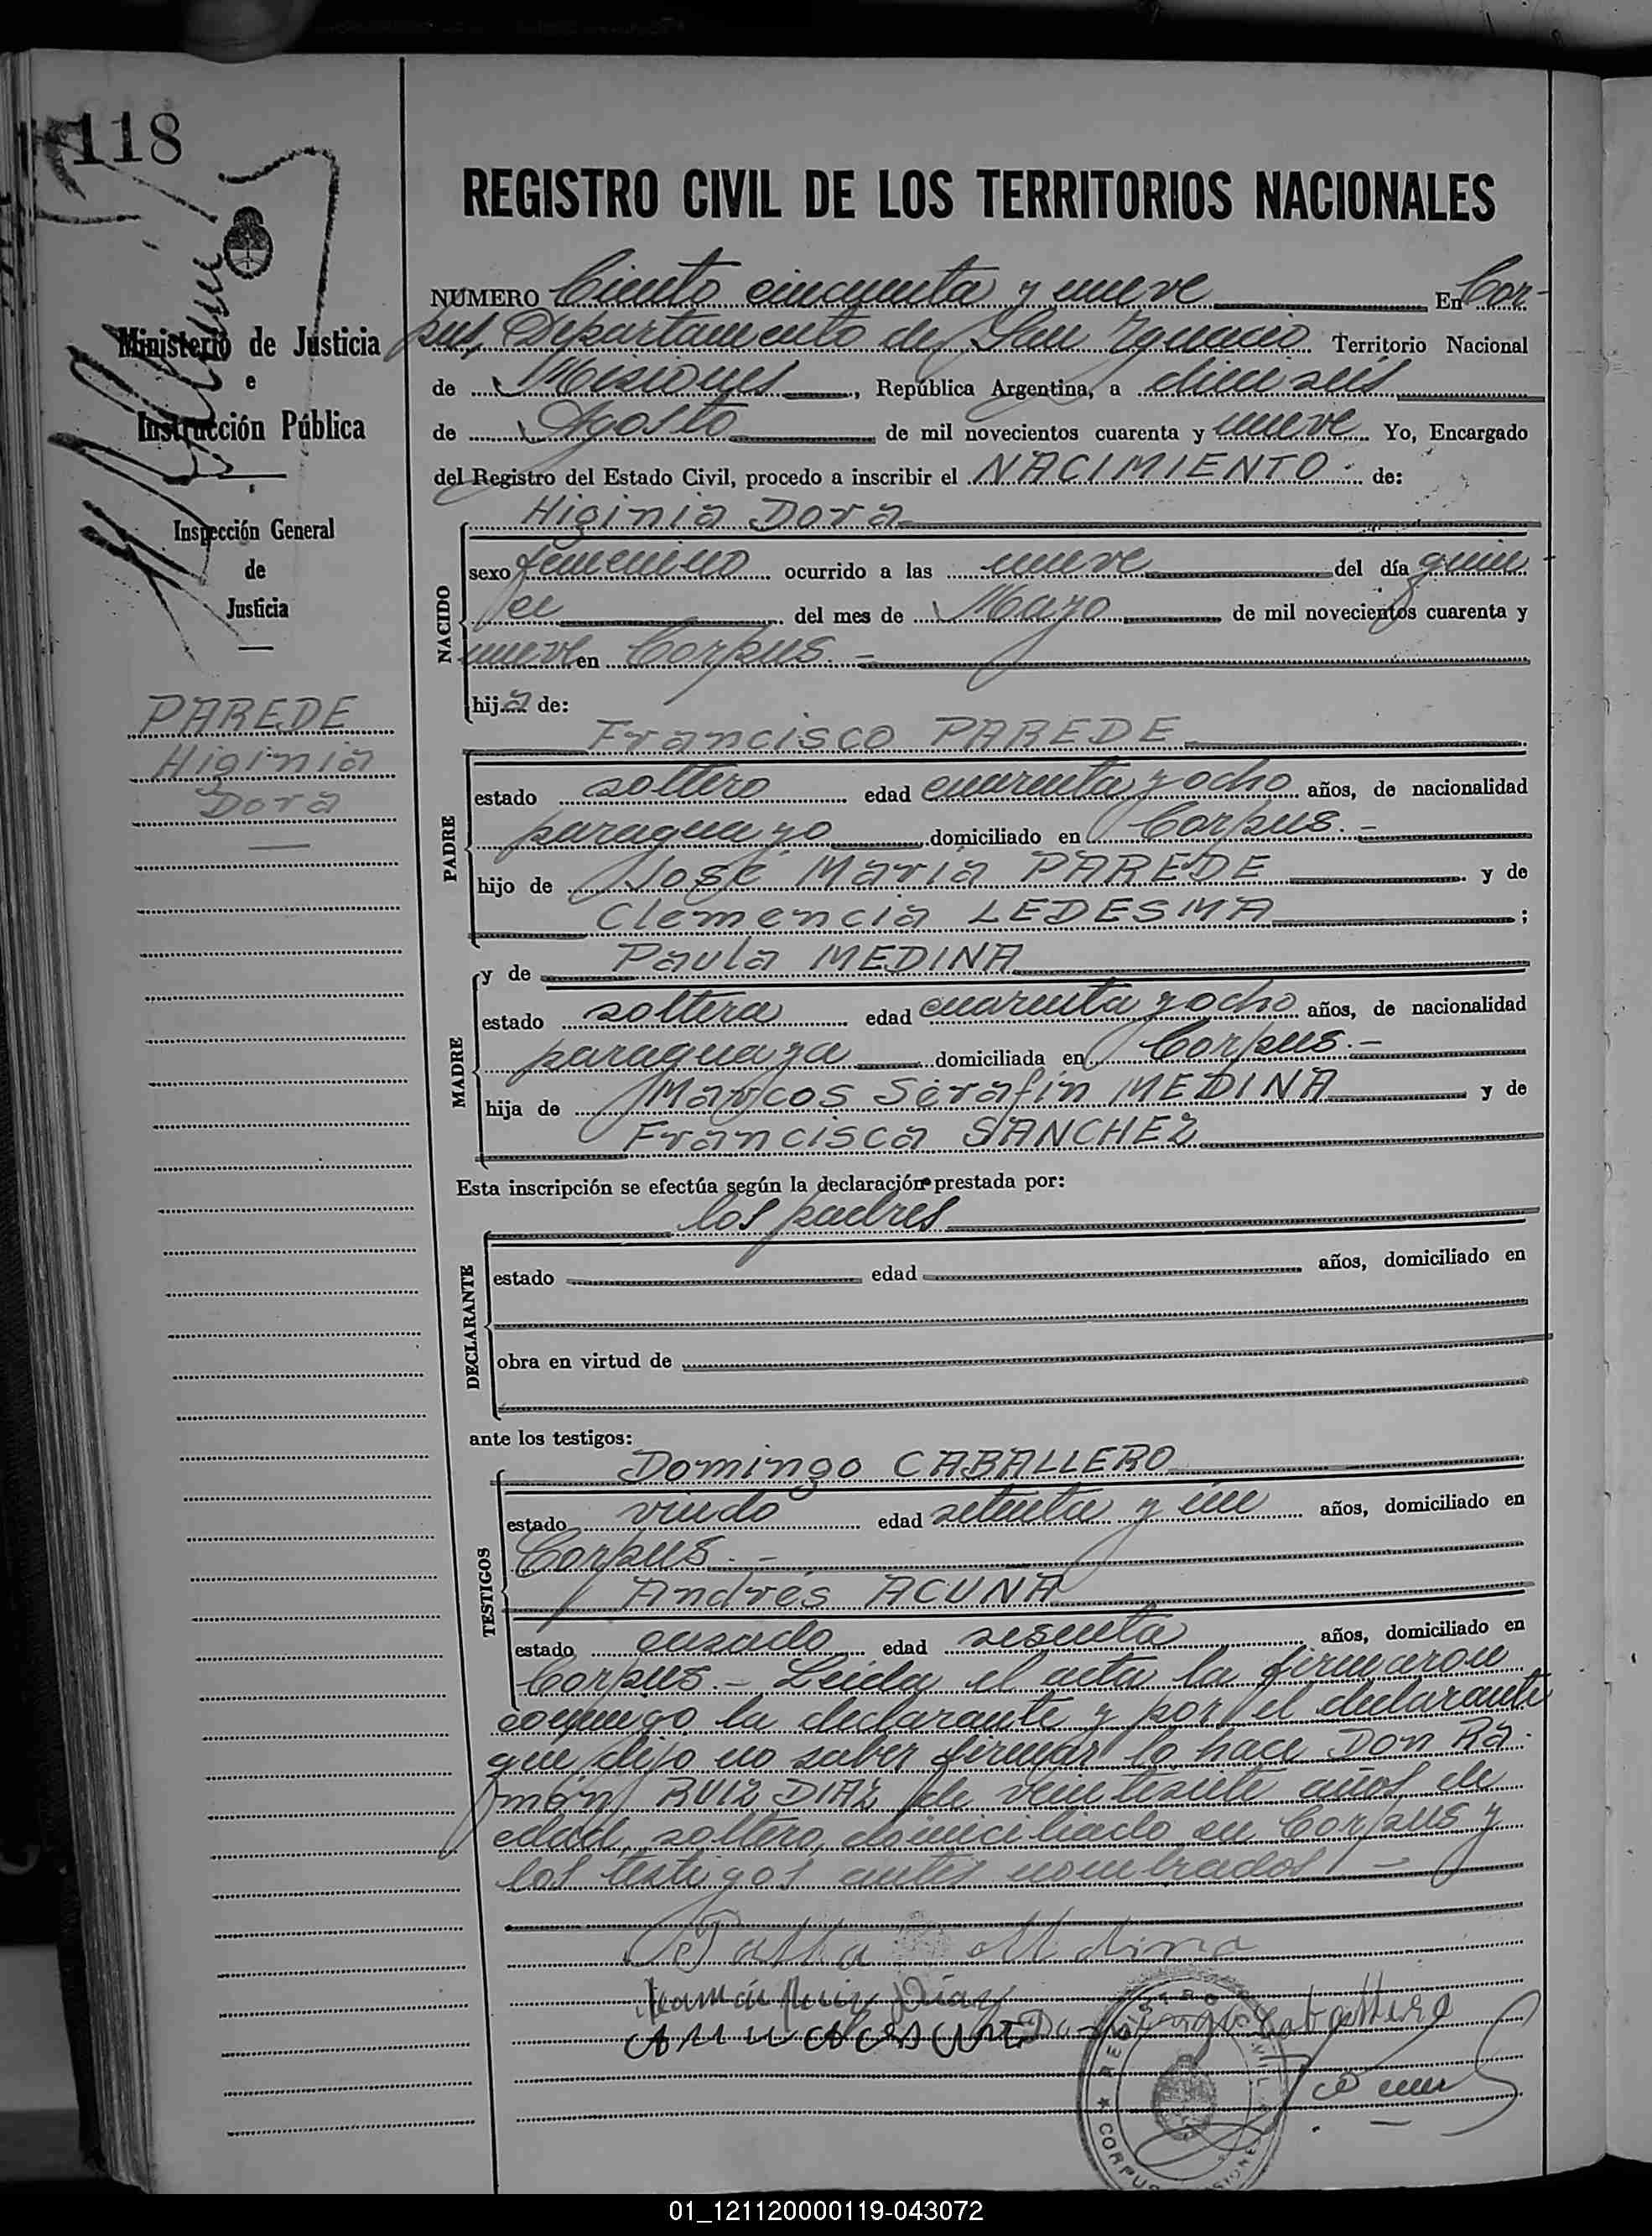 118
Ministerio de Justicia
e
Instrucción Pública
Inspección General
de
Justicia
PAREDE
Higinia
Dora
REGISTRO CIVIL DE LOS TERRITORIOS NACIONALES
NUMERO Ciento cincuenta y nueve En Cor-
pus, Departamento de San Ignacio Territorio Nacional
de Misiones, República Argentina, a dieciseis
de Agosto de mil novecientos cuarenta y nueve Yo, Encargado
del Registro del Estado Civil, procedo a inscribir el NACIMIENTO. de:
Higinia Dora
NACIDO
sexo femenino ocurrido a las nueve del día quin-
ce del mes de Mayo de mil novecientos cuarenta y
nueve en Corpus.-
hija de:
Francisco PAREDE
PADRE
estado soltero edad cuarenta y ocho años, de nacionalidad
paraguayo domiciliado en Corpus.-
hijo de José María PAREDE y de
Clemencia LEDESMA;
y de Paula MEDINA
MADRE
estado soltera edad cuarenta y ocho años, de nacionalidad
paraguaya domiciliada en Corpus.-
hija de Marcos Serafín MEDINA y de
Francisca SANCHEZ
Esta inscripción se efectúa según la declaración prestada por:
los padres
DECLARANTE
estado edad años, domiciliado en
obra en virtud de
ante los testigos:
Domingo CABALLERO
TESTIGOS
estado viudo edad setenta y un años, domiciliado en
Corpus.-
Andrés ACUNA
estado casado edad sesenta años, domiciliado en
Corpus.- Leída el acta la firmaron
conmigo la declarante y por el declarante
que dijo no saber firmar lo hace Don Ra-
món RUIZ DIAZ de veintisiete años de
edad, soltero, domiciliado en Corpus y
los testigos antes nombrados.-
Medina
Ramón Ruiz Díaz
Domingo Caballero
CORPUS
01_121120000119-043072